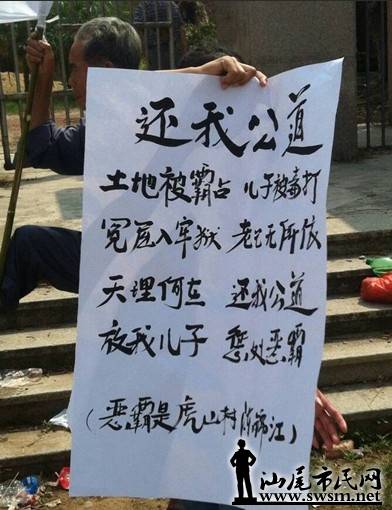 还我公道
土地被霸占 儿子被毒打
冤屈入牢狱 老已无所依
天理何在 还我公道
放我儿子 惩处恶霸
(恶霸是虎山村陈锦江)
汕尾市民网
www.swsm.net